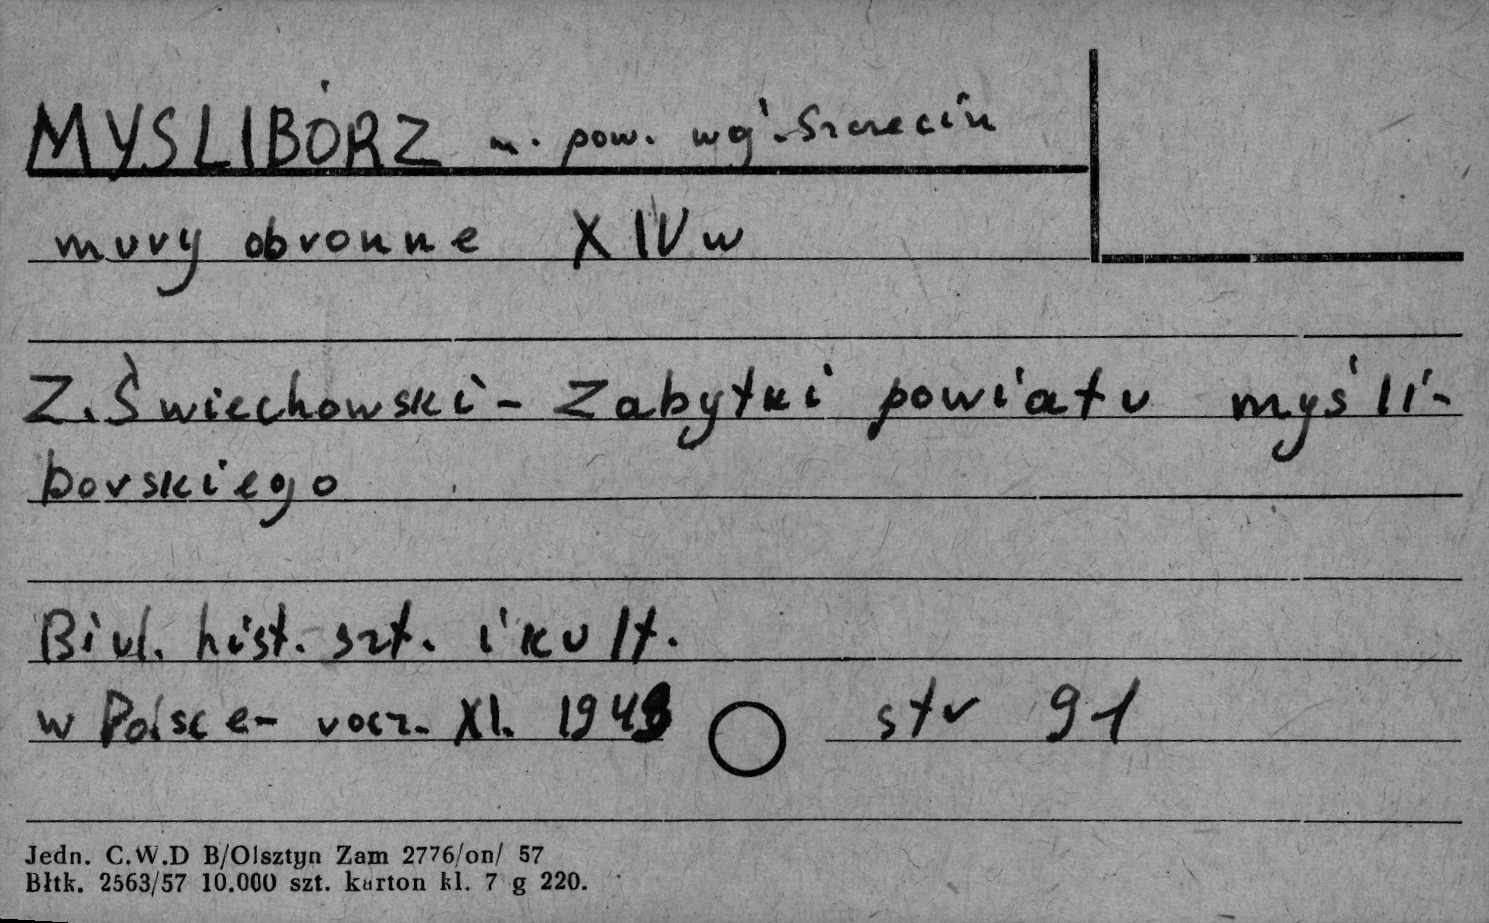 MYSLIBÓRZ m. pow. woj. Szczecin
mury obronne XIV w
Z. Świechowski - Zabytki powiatu myśli-
borskiego
Biul. hist. szt. i kult.
w Polsce - rocz. XI. 1949 str 91
Jedn. C.W.D B/Olsztyn Zam 2776/on/ 57
Błtk. 2563/57 10.000 szt. karton kl. 7 g 220.